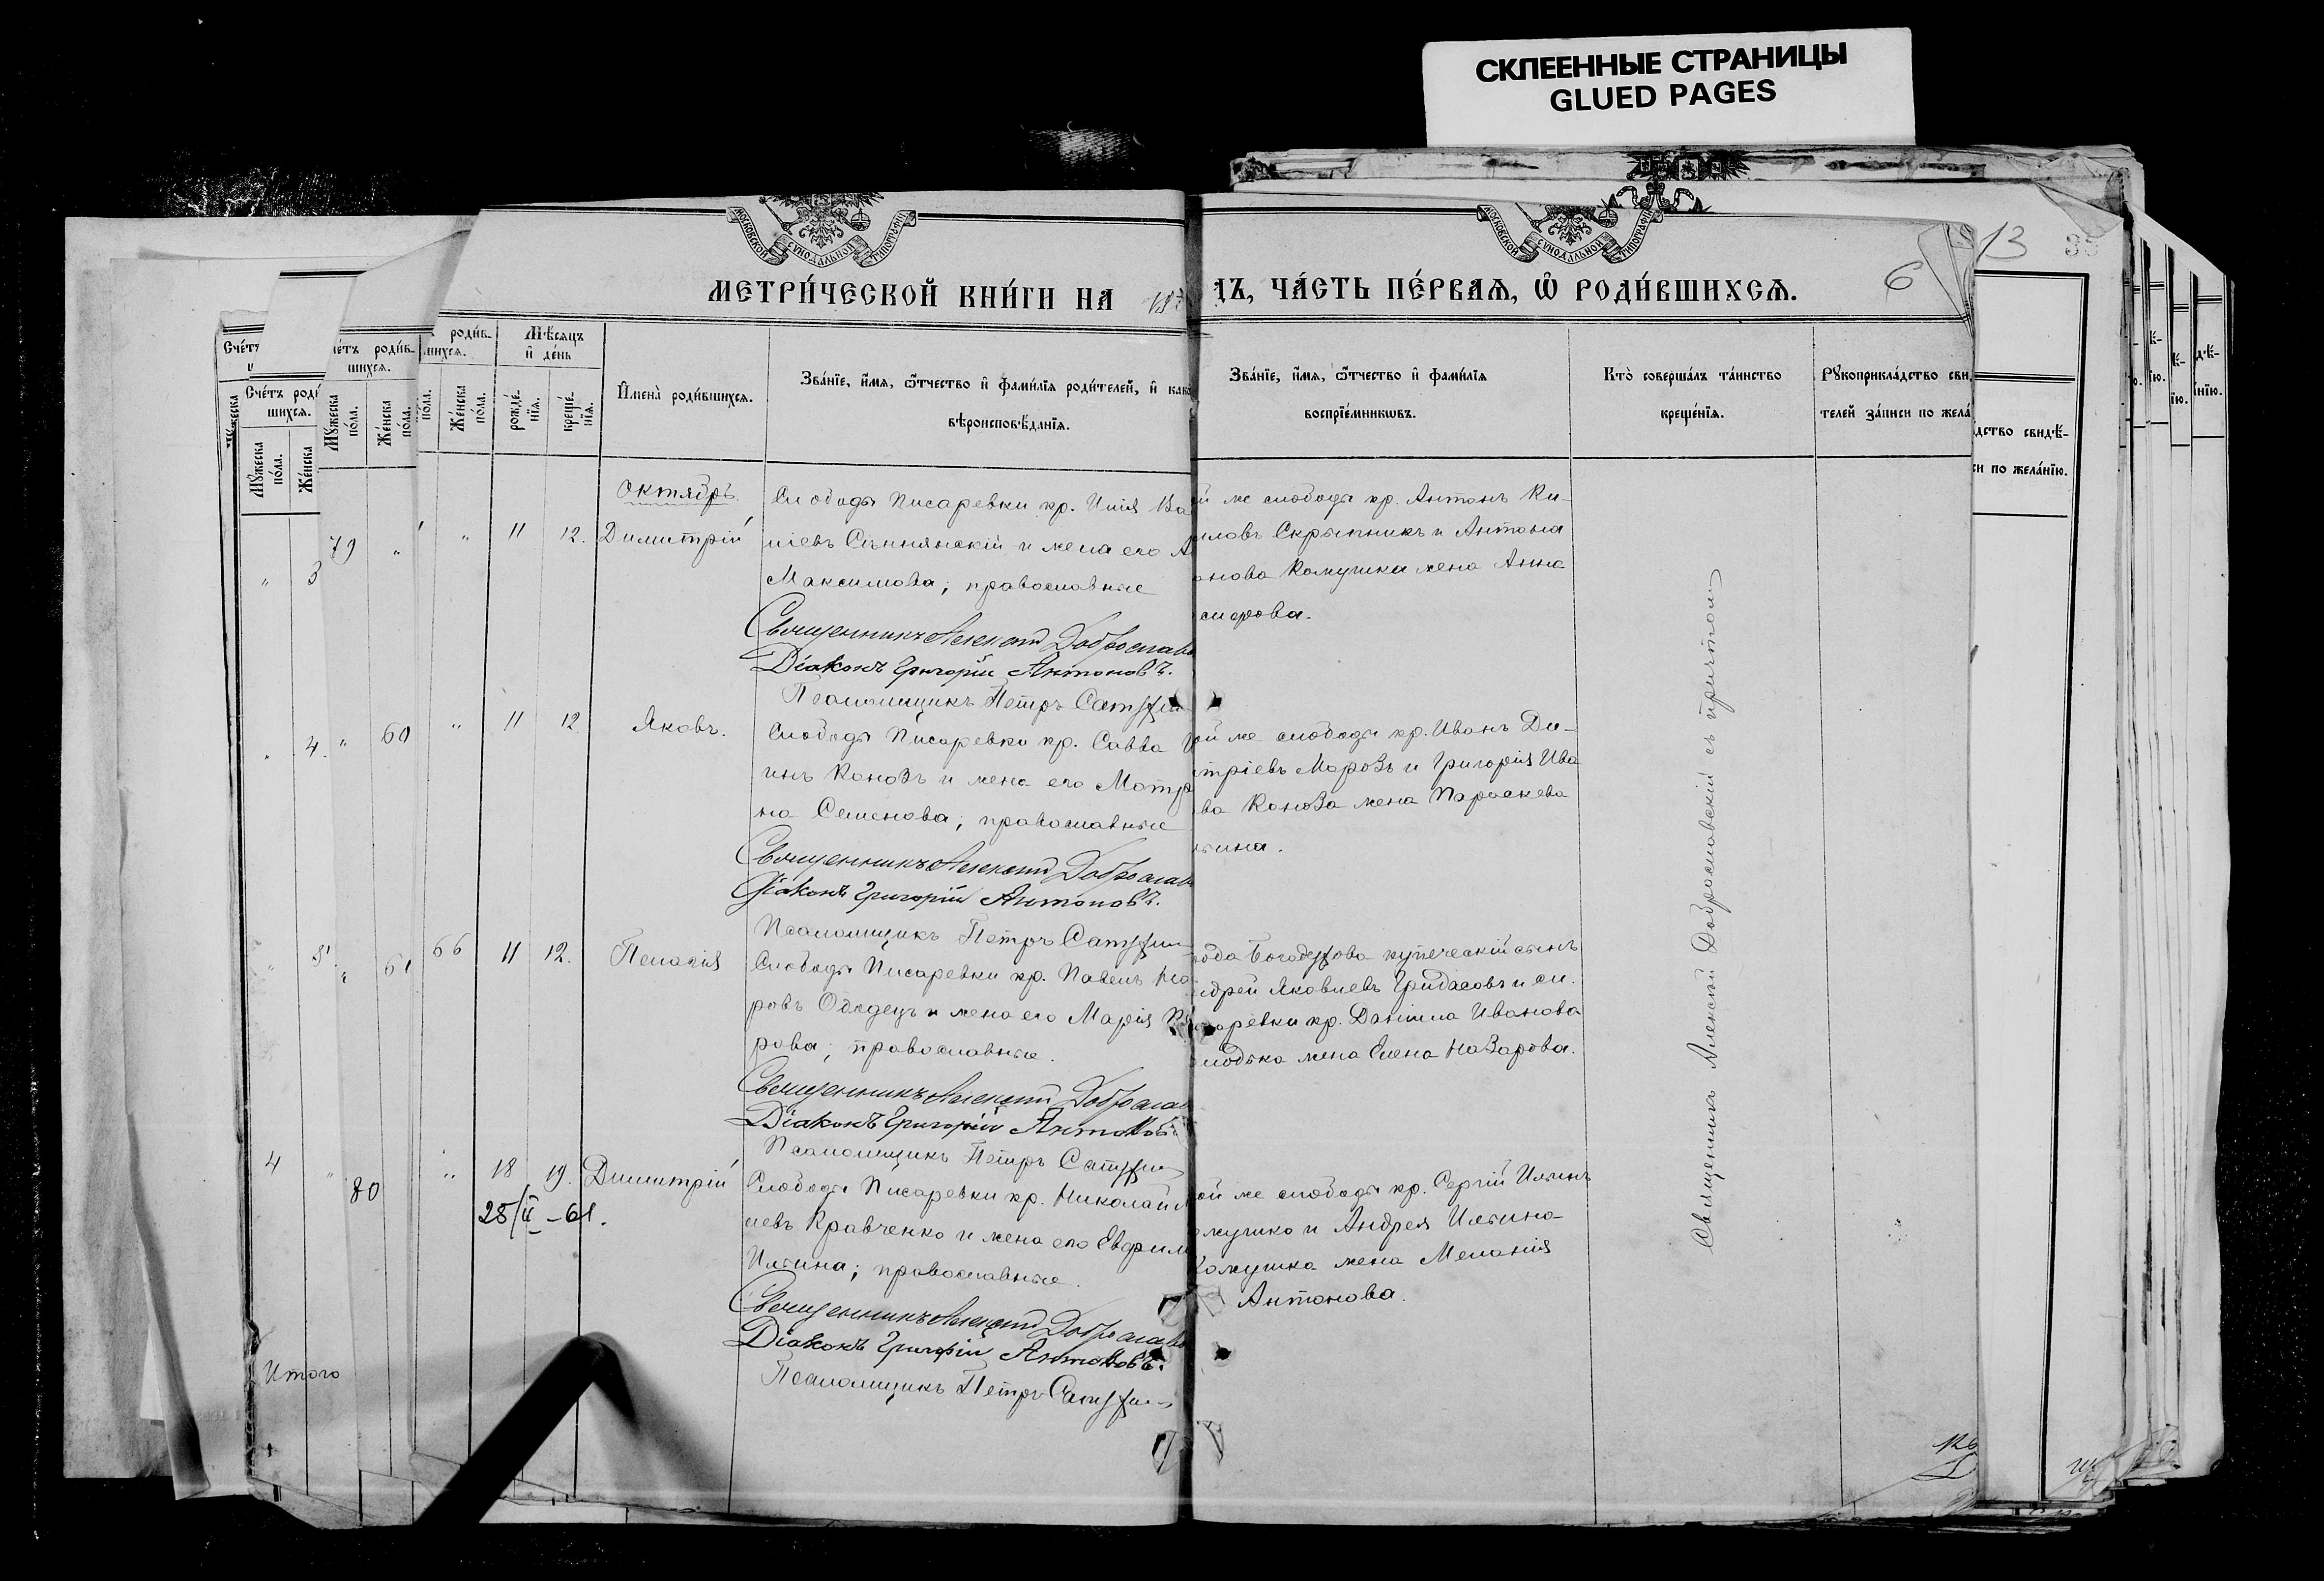 СКЛЕЕННЫЕ СТРАНИЦЫ
GLUED PAGES
МОСКОВСКОЙ СѴНОДАЛЬНОЙ ТИПОГРАФІИ
МОСКОВСКОЙ СѴНОДАЛЬНОЙ ТИПОГРАФІИ
МЕТРИ́ЧЕСКОЙ КНИ́ГИ НА 187
ДЪ, ЧА́СТЬ ПЕ́РВАЯ, Ѡ҆ РОДИ́ВШИХСЯ.
6
13
Сче́тъ роди́
шихся.
Мꙋ́жеска по́ла.
Же́нска
че́тъ роди́в-
шихся.
Мꙋ́жеска по́ла.
Же́нска по́ла.
роди́в-
шихся.
по́ла.
Же́нска по́ла.
Мѣ́сяцъ и҆ де́нь
рожде́нїя.
креще́нїя.
И҆мена̀ роди́вшихся.
Зва́нїе, и҆́мя, ѻ҆́тчество и҆ фами́лїя роди́телей, и҆ как
вѣроисповѣ́данїя.
Зва́нїе, и҆́мя, ѻ҆́тчество и҆ фами́лїя
воспрїе́мникѡвъ.
Кто̀ соверша́лъ та́инство
креще́нїя.
Рꙋкоприкла́дство сви
телей за́писи по жела́
дство свидѣ́-
си по жела́нїю.
Октябрь.
79 " " 11 12. Димитрій
Слободы Писаревки кр. Илія Ва
ліевъ Сѣннянскій и жена его А
Максимова; православные
Священникъ Алексій Доброслав
Діаконъ Григорій Антоновъ.
Псаломщикъ Петръ Сату
й же слободы кр. Антонъ Ки-
иловъ Скрыпникъ и Антона
анова Кожушка жена Анна
сидрова.
" 3
" 4. " 60 " 11 12 Яковъ.
Слободы Писаревки кр. Савва
инъ Коновъ и жена его Матр
на Семенова; православные
Священникъ Алексій Доброслав
Діаконъ Григорій Антоновъ.
Псаломщикъ Петръ Сату
ой же слободы кр. Иванъ Ди-
итріевъ Морозъ и Григорія Ива
ва Конова жена Параскева
ьина.
" 5 " 61 66 11 12. Пелагія
Слободы Писаревки кр. Павелъ
ровъ Ободецъ и жена его Марія
рова; православные.
Священникъ Алексій Доброслав
Діаконъ Григорій Антоновъ
Псаломщикъ Петръ Сату
ода Богодухова купеческій сынъ
ндрей Яковлевъ Гридасовъ и сл.
аревки кр. Даніила Иванова
лодька жена Елена Назарова.
4 " 80 " 18 19. Димитрій
25/II - 61.
Слободы Писаревки кр. Николай
иевъ Кравченко и жена его Евфим
Ильина; православные.
Священникъ Алексій Доброслав
Діаконъ Григорій Антоновъ.
Псаломщикъ Петръ Сату
ой же слободы кр. Сергій Ильинъ
ожушко и Андрея Ильина
Кожушка жена Меланія
Антонова.
Священникъ Алексій Доброславскій съ причтомъ
Итого